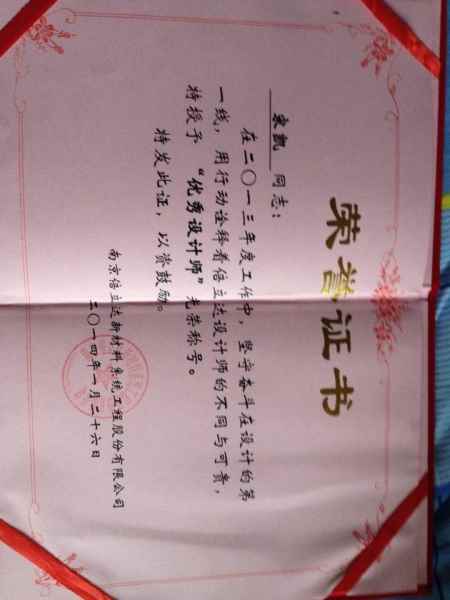 荣誉证书
宋凯 同志：
在二〇一三年度工作中，坚守奋斗在设计的第
一线，用行动诠释着倍立达设计师的不同与可贵，
特授予 “优秀设计师” 光荣称号。
特发此证，以资鼓励。
南京倍立达新材料系统工程股份有限公司
二〇一四年一月二十六日